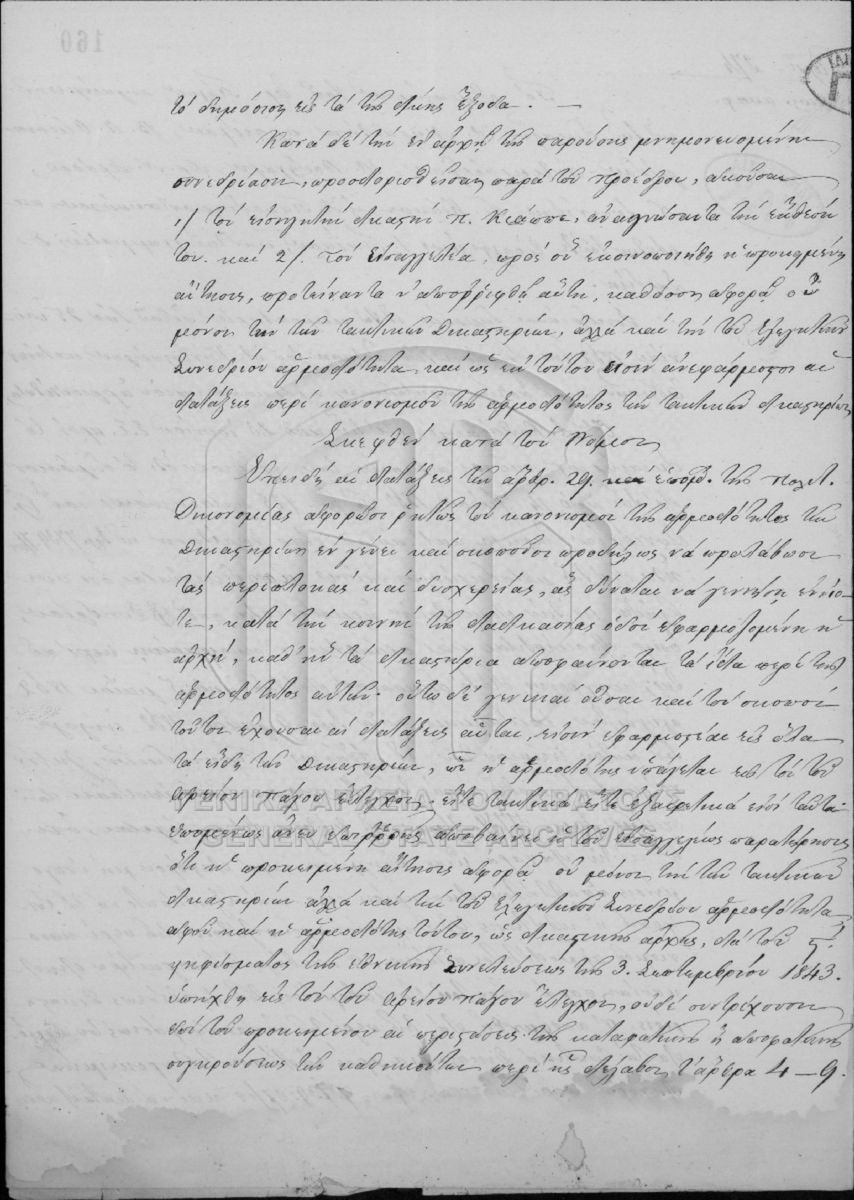 160
τὸ δημόσιον εἰς τὰ τῆς δίκης ἔξοδα. —
Κατὰ δὲ τὴν ἐν ἀρχῇ τῆς παρούσης μνημονευομένην
συνεδρίασιν, προσδιορισθεῖσαν παρὰ τοῦ Προέδρου, ἀκοῦσαν
1/ τὸν εἰσηγητὴν δικαστὴν Π. ἀναγνώσαντα τὴν ἔκθεσίν
του. καὶ 2/. τὸν Εἰσαγγελέα, πρὸς ὃν ἐκοινοποιήθη ἡ προκειμένη
αἴτησις, προτείναντα ν' ἀπορριφθῇ αὕτη, καθόσον ἀφορᾷ οὐ
μόνον τὴν τῶν τακτικῶν Δικαστηρίων, ἀλλὰ καὶ τὴν τοῦ Ἐλεγκτικοῦ
Συνεδρίου ἁρμοδιότητα, καὶ ὡς ἐκ τούτου εἰσὶν ἀνεφάρμοστοι αἱ
διατάξεις περὶ κανονισμοῦ τῆς ἁρμοδιότητος τῶν τακτικῶν δικαστηρίων
Σκεφθὲν κατὰ τὸν Νόμον
Ἐπειδὴ αἱ διατάξεις τῶν ἄρθρ. 29. καὶ ἑπομ. τῆς Πολιτ.
Δικονομίας ἀφορῶσι ῥητῶς τὸν κανονισμὸν τῆς ἁρμοδιότητος τῶν
Δικαστηρίων ἐν γένει καὶ σκοποῦσι προδήλως νὰ προλάβωσι
τὰς περιπλοκὰς καὶ δυσχερείας, ἃς δύναται νὰ γεννήσῃ ἐνίο-
τε, κατὰ τὴν κοινὴν τῆς διαδικασίας ὁδὸν ἐφαρμοζομένη ἡ
ἀρχή, καθ' ἣν τὰ δικαστήρια ἀποφαίνονται τὰ ἴδια περὶ τῆς
ἁρμοδιότητος αὐτῶν· οὕτω δὲ γενικαὶ οὖσαι καὶ τὸν σκοπὸν
τοῦτον ἔχουσαι αἱ διατάξεις αὗται, εἰσὶν ἐφαρμοστέαι εἰς ὅλα
τὰ εἴδη τῶν Δικαστηρίων, ὧν ἡ ἁρμοδιότης ὑπάγεται εἰς τὸν τοῦ
Ἀρείου Πάγου ἔλεγχον, εἴτε τακτικὰ εἴτε ἐξαιρετικὰ εἰσὶ ταῦτα·
ἑπομένως ἄνευ ἐπιρροῆς ἀποβαίνει ἡ τοῦ Εἰσαγγελέως παρατήρησις
ὅτι ἡ προκειμένη αἴτησις ἀφορᾷ οὐ μόνον τὴν τῶν τακτικῶν
δικαστηρίων ἀλλὰ καὶ τὴν τοῦ Ἐλεγκτικοῦ Συνεδρίου ἁρμοδιότητα
ἀφοῦ καὶ ἡ ἁρμοδιότης τούτου, ὡς δικαστικῆς ἀρχῆς, διὰ τοῦ
ψηφίσματος τῆς ἐθνικῆς Συνελεύσεως τῆς 3. Σεπτεμβρίου 1843.
ὑπήχθη εἰς τὸν τοῦ Ἀρείου Πάγου ἔλεγχον, οὐδὲ συντρέχουσιν
ἐπὶ τοῦ προκειμένου αἱ περιστάσεις τῆς καταφατικῆς ἢ ἀποφατικῆς
συγκρούσεως τῶν καθηκόντων περὶ ἧς διέλαβον τὰ ἄρθρα 4 — 9.
ΓΕΝΙΚΑ ΑΡΧΕΙΑ ΤΟΥ ΚΡΑΤΟΥΣ
GENERAL STATE ARCHIVES